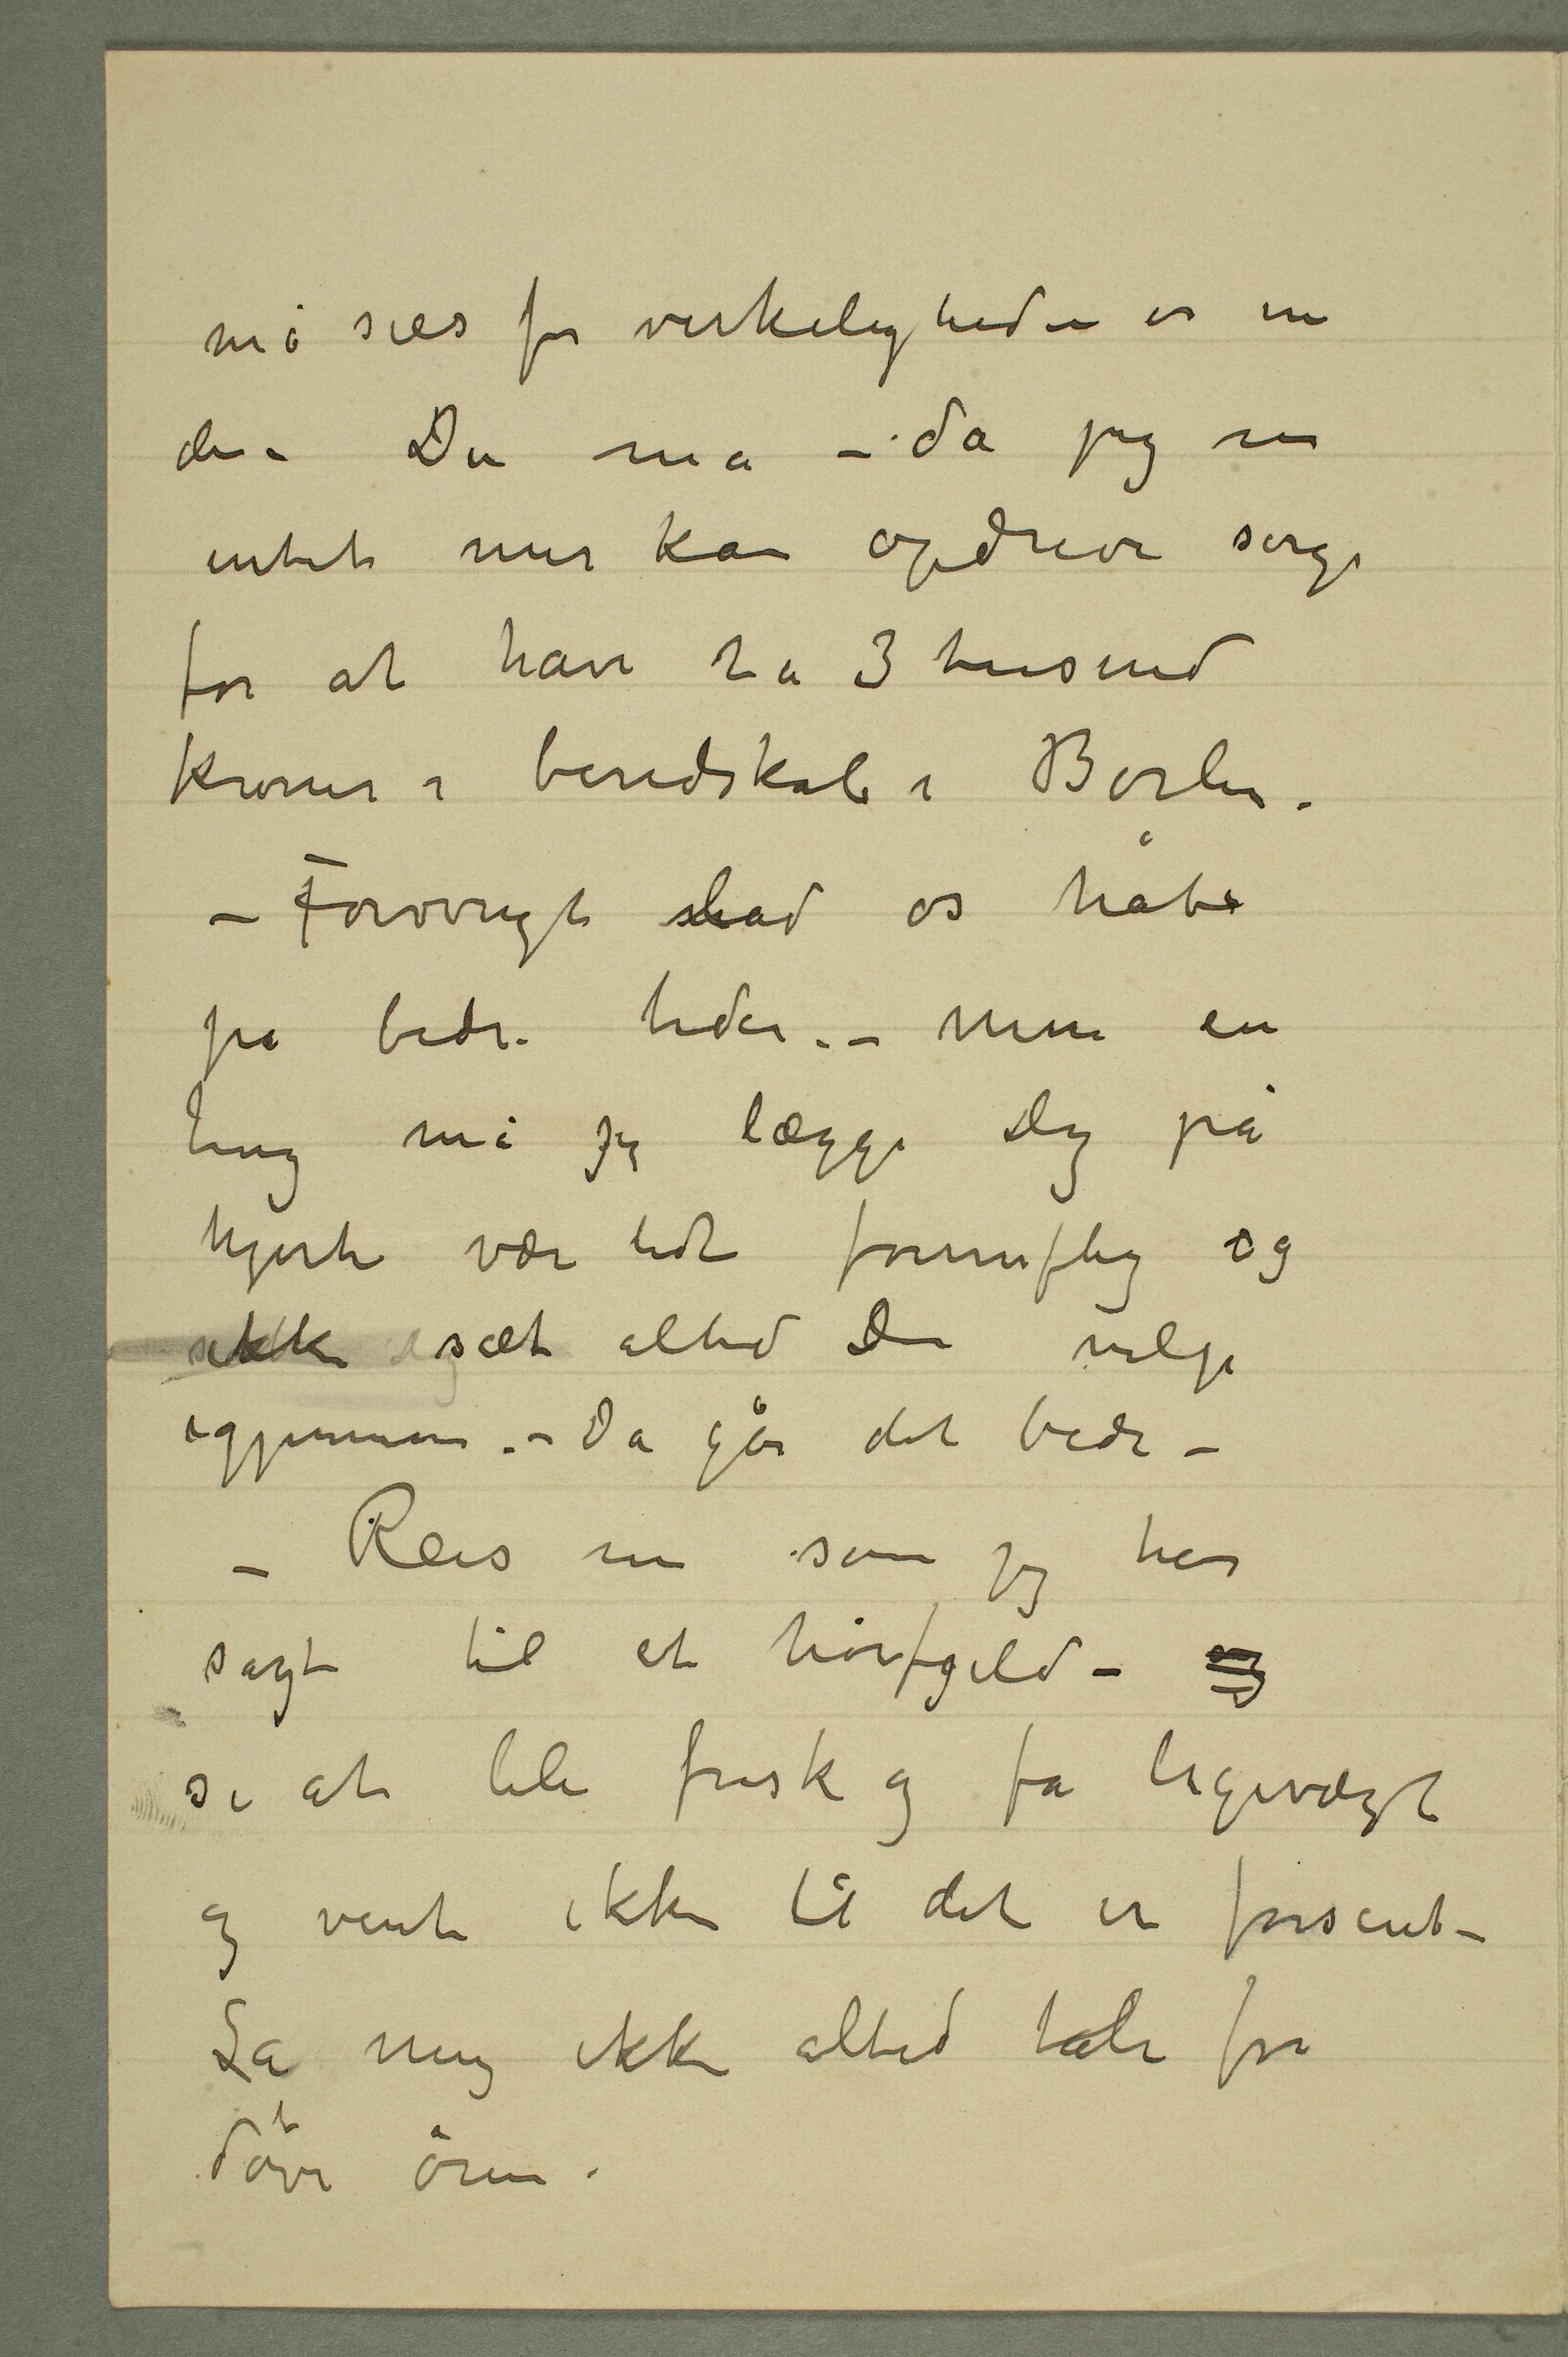 må sies for virkeligheden er nu
der Du må – da jeg nu
intet mer kan opdrive sørge
for at have 2 a 3 tusend
kroner i beredskab i Berlin.
– Forøvrigt lad os håbe
på bedre tider. – Men en
ting må jeg lægge Dig på
hjerte vær lidt fornuftig og
ikke sæt altid Din vilje
igjennem. – Da går det bedre –
– Reis nu som jeg har
sagt til et høifjeld –
se at bli frisk og få ligevægt
og vent ikke til det er forsent –
La mig ikke altid tale for
døve ören.